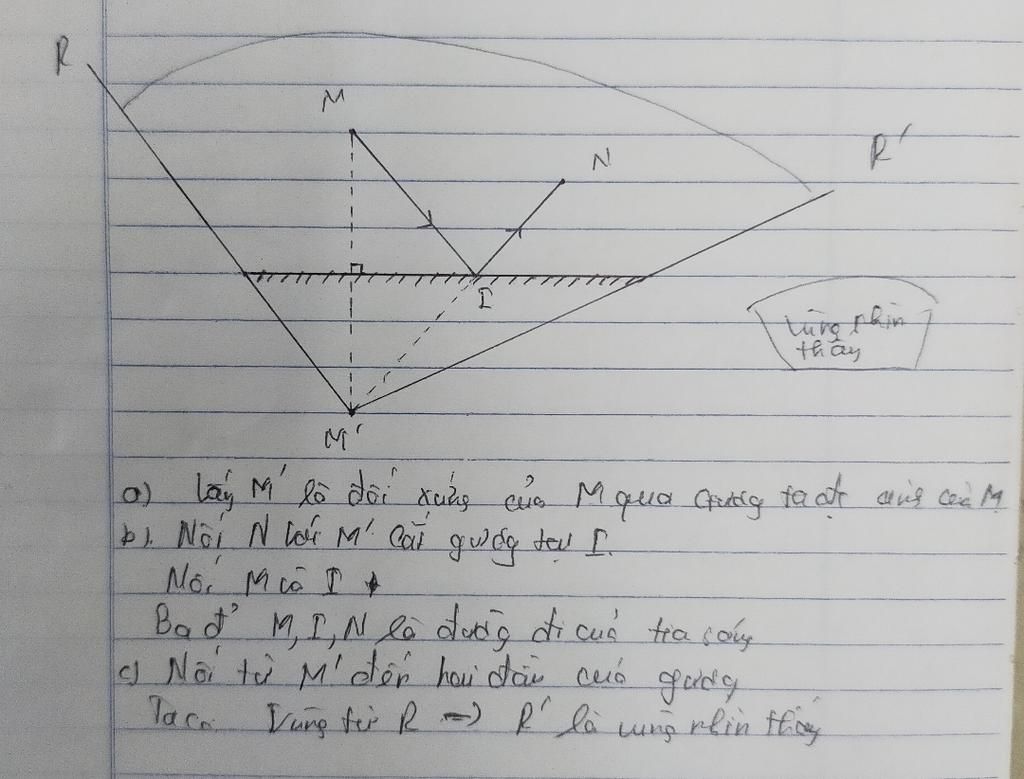 R
M
N
R'
I
Vùng nhìn
thấy
M'
a) Lấy M' là đối xứng của M qua gương ta đc ảnh của M
b). Nối N với M' cắt gương tại I.
Nối M và I
Ba đ' M, I, N là đường đi của tia sáng
c) Nối từ M' đến hai đầu của gương
Ta có Vùng từ R => R' là vùng nhìn thấy